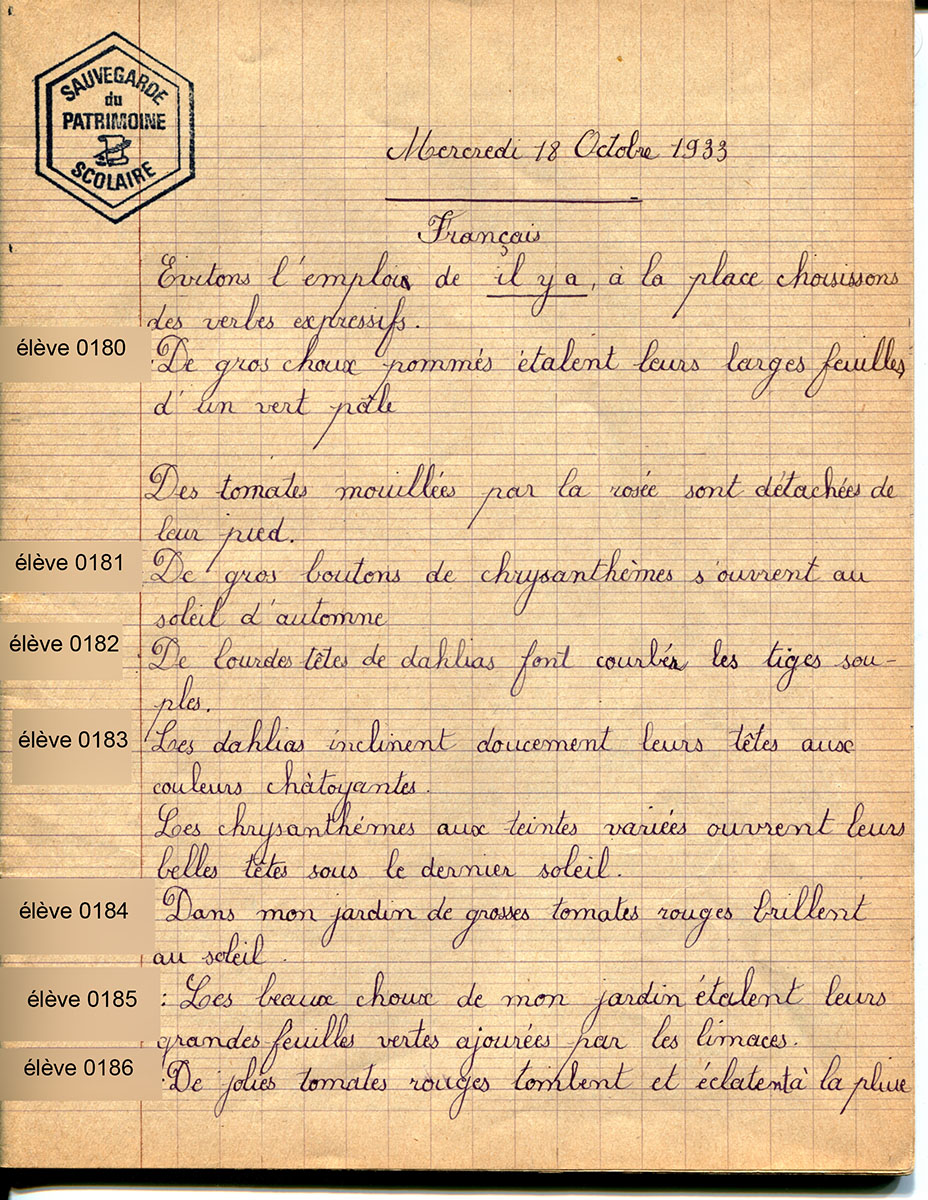 SAUVEGARDE
du
PATRIMOINE
SCOLAIRE
Mercredi 18 Octobre 1933
Français
Evitons l'emploi de il y a, à la place choisissons
des verbes expressifs.
élève 0180
De gros choux pommés étalent leurs larges feuilles
d'un vert pâle
Des tomates mouillées par la rosée sont détachées de
leur pied.
élève 0181
De gros boutons de chrysanthèmes s'ouvrent au
soleil d'automne
élève 0182
De lourdes têtes de dahlias font courber les tiges sou-
ples.
élève 0183
Les dahlias inclinent doucement leurs têtes aux
couleurs châtoyantes.
Les chrysanthémes aux teintes variées ouvrent leurs
belles têtes sous le dernier soleil.
élève 0184
Dans mon jardin de grosses tomates rouges brillent
au soleil.
élève 0185
: Les beaux choux de mon jardin étalent leurs
grandes feuilles vertes ajourées par les limaces.
élève 0186
De jolies tomates rouges tombent et éclatent à la pluie